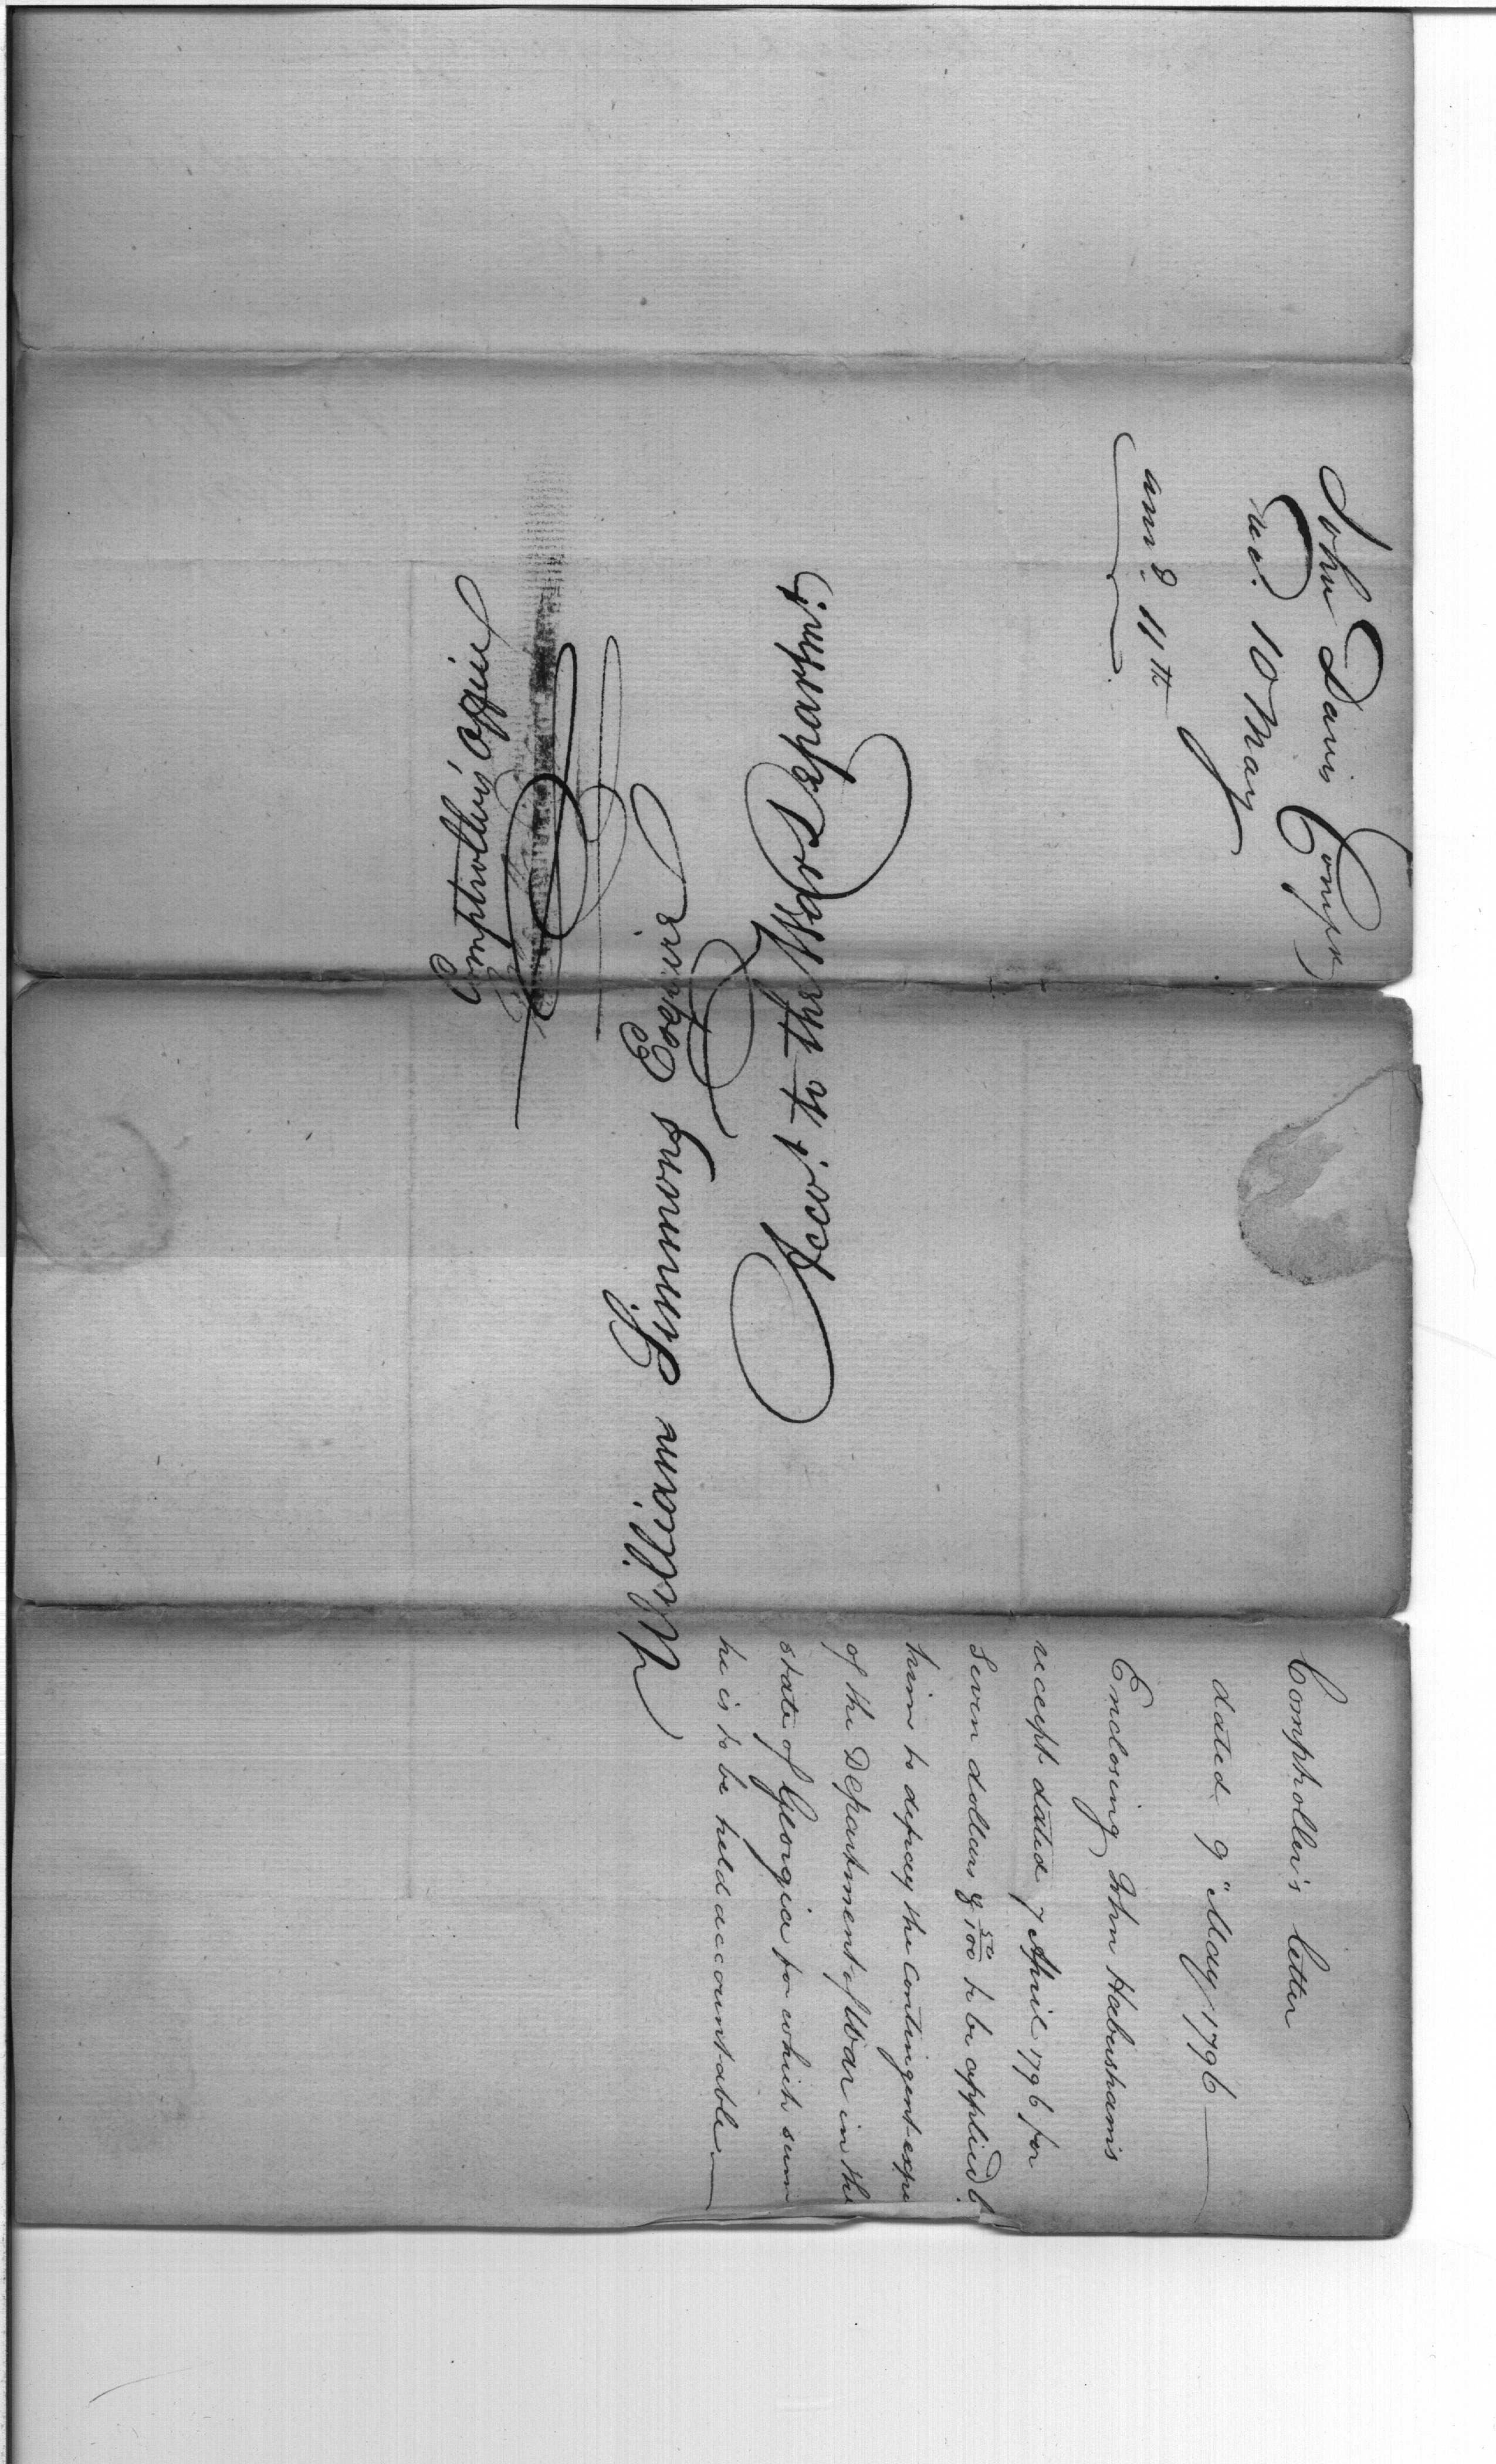 John Davis Compr
recd. 10 May
ansd. 11th
William Simmons Esquire
Accot. to the War Department
Comptroller's Office
Comptroller's letter
dated 9" May 1796
Enclosing John Habersham's
receipt dated 7 April 1796 for
Seven dollars & 50/100 to be applied b
him to defray the Contingent expe
of the Department of War in the
state of Georgia for which sum
he is to be held accountable.